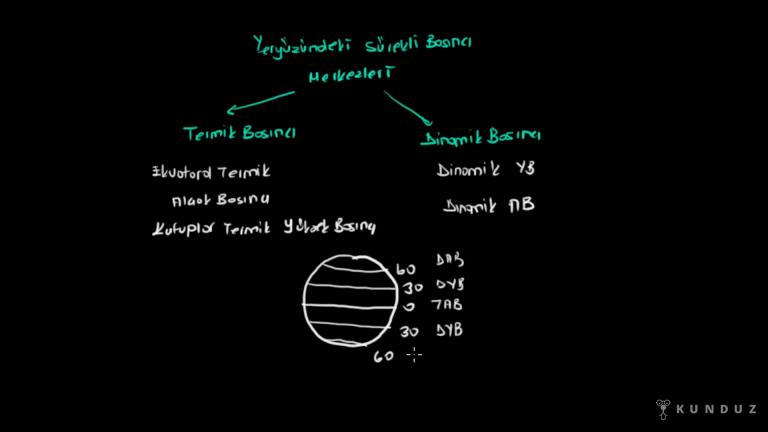 Yeryüzündeki Sürekli Basıncı
Merkezleri
Termik Basıncı
Dinamik Basıncı
Ekvatoral Termik
Alçak Basıncı
Kutuplar Termik Yüksek Basıncı
Dinamik YB
Dinamik AB
60 DAB
30 DYB
0 TAB
30 DYB
60
KUNDUZ